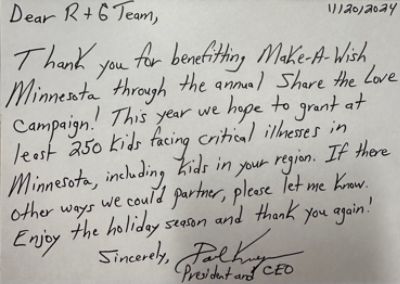 Dear R + G Team, 11/20/2024
Thank you for benefitting Make-A-Wish
Minnesota through the annual Share the Love
Campaign! This year we hope to grant at
least 250 kids facing critical illnesses in
Minnesota, including kids in your region. If there
other ways we could partner, please let me know.
Enjoy the holiday season and thank you again!
Sincerely,
President and CEO